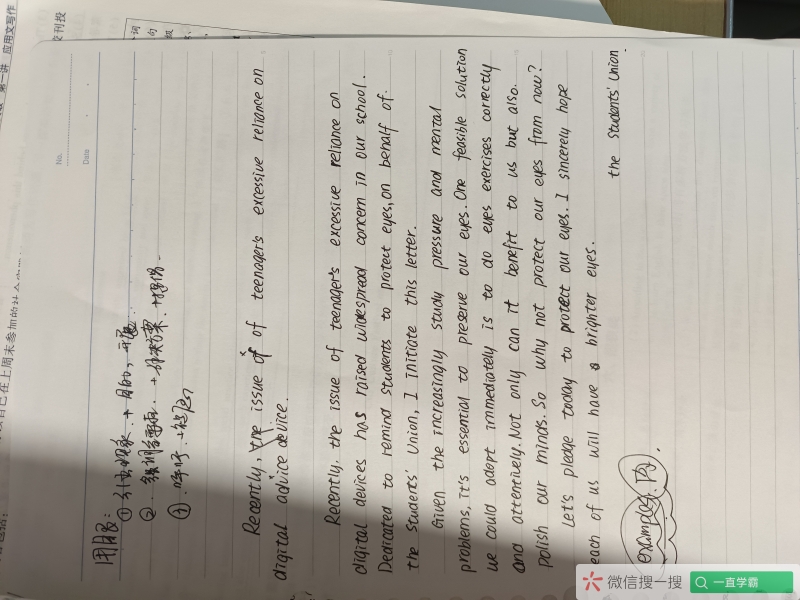 No.
Date
① 引出现象 + 目的,
② 强调重要性 + 解决方案 +
③ 呼吁 +
Recently, the issue of of teenagers excessive reliance on
digital advice device.
Recently. the issue of teenagers excessive reliance on
digital devices has raised widespread concern in our school.
Dedicated to remind students to protect eyes, on behalf of
the Students' Union, I initiate this letter.
Given the increasingly study pressure and mental
problems, it's essential to preserve our eyes. One feasible solution
we could adopt immediately is to do eyes exercises correctly
and attentively. Not only can it benefit to us but also
Polish our minds. So why not protect our eyes from now?
Let's pledge today to protect our eyes. I sincerely hope
each of us will have a brighter eyes.
the Students' Union.
examples. 内
微信搜一搜
一直学霸
第一讲 应用文写作
自己在上周末参加的社会实践